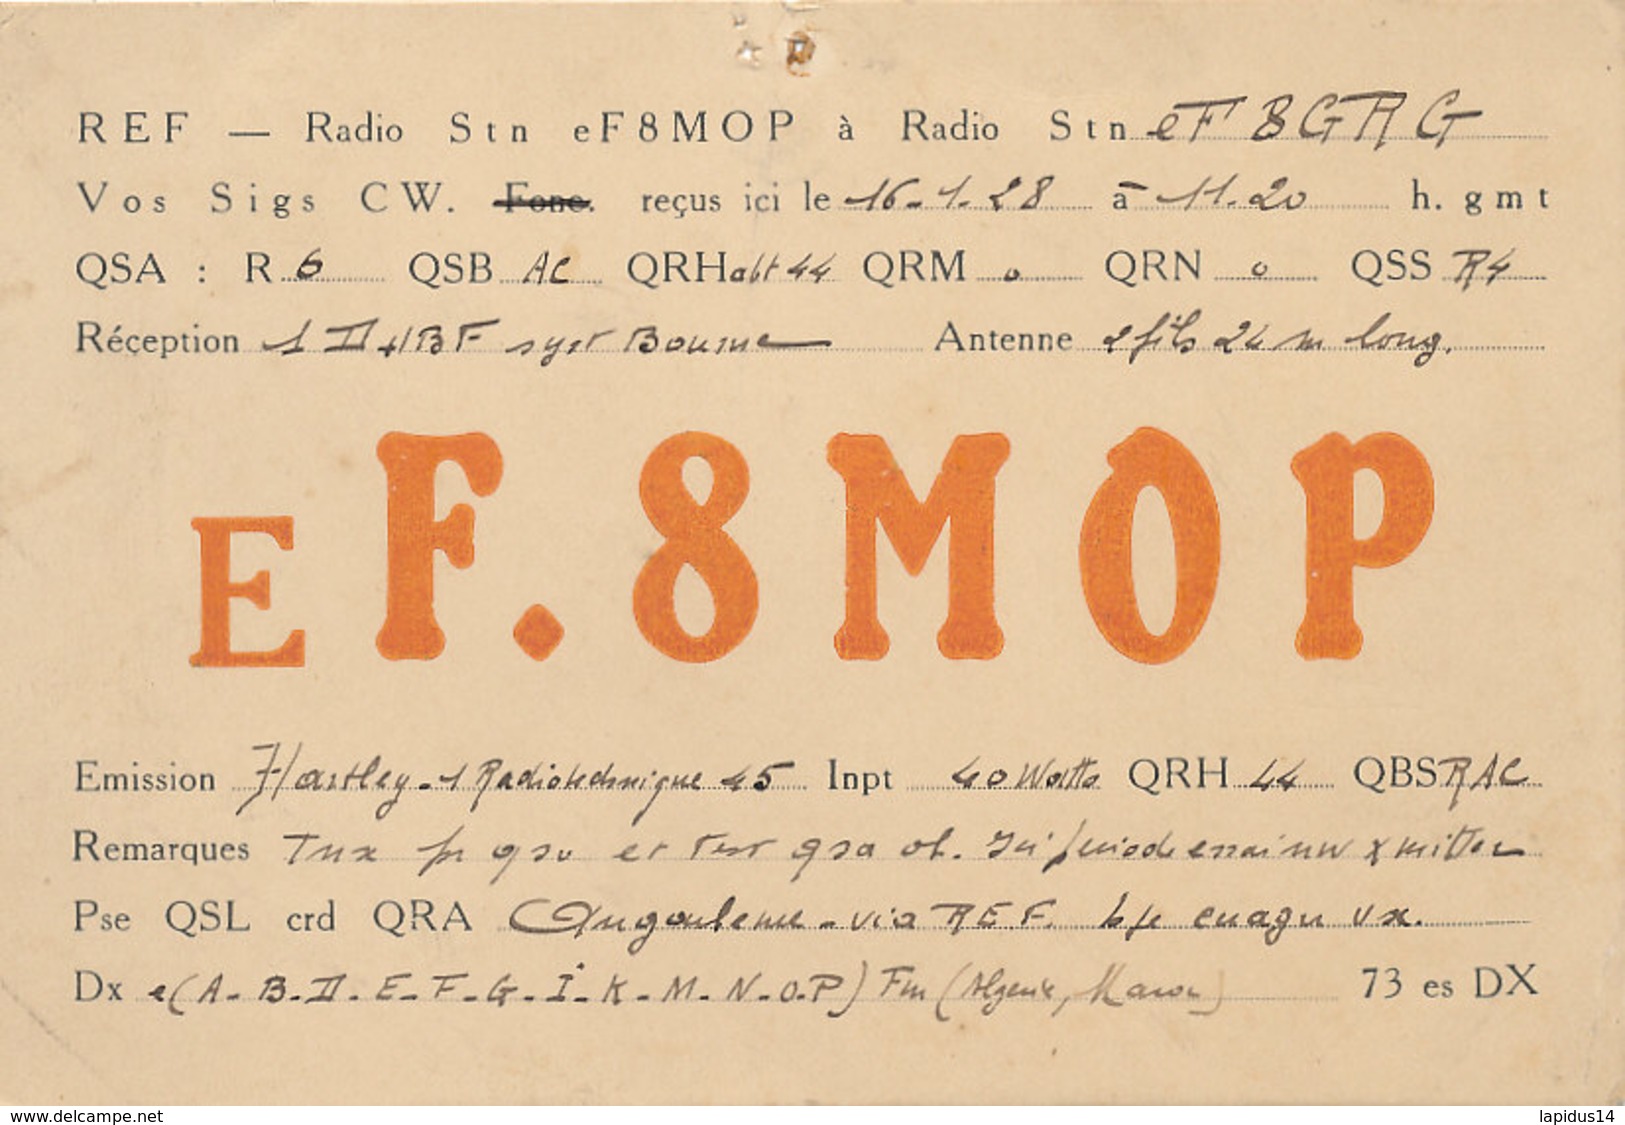 REF — Radio Stn eF8MOP à Radio Stn eF 8GRG
Vos Sigs CW. Fone. reçus ici le 16-1-28 à 11.20 h. gmt
QSA : R 6 QSB AC QRH abt 44 QRM 0 QRN 0 QSS R4
Réception 1 D+1BF syst Bourne Antenne 2 fils 24 m long.
EF.8MOP
Emission Hartley-1 Radiotechnique 45 Inpt 40 Watts QRH 44 QBS RAC
Remarques Tnx pr qso et test qsa ob.
Pse QSL crd QRA Angouleme - via REF.
Dx e(A-B-D-E-F-G-I-K-M-N-O-P) Fm (Algerie, Maroc) 73 es DX
www.delcampe.net
lapidus14